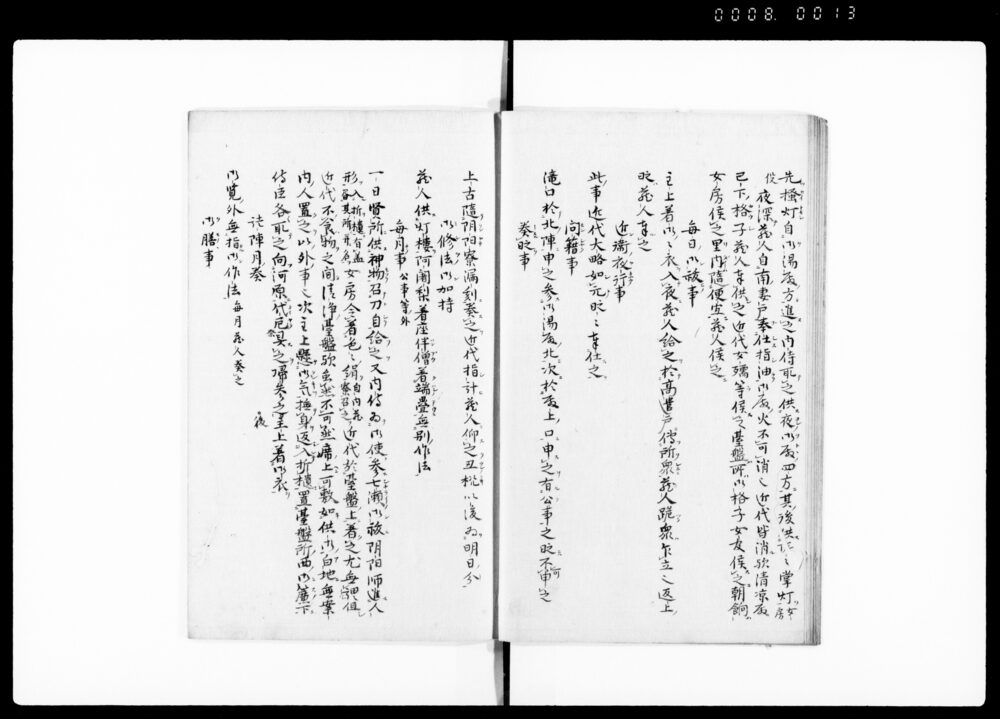 0008. 0013
先掻灯自御湯殿方進之内侍取之供夜御殿四方其後供之掌灯女房
役夜深蔵人自南妻戸奉仕指油御殿火不可消之近代皆消歟清涼殿
已下格子蔵人奉供之近代女孺等候之台盤所御格子女女候之朝餉
女房候之里内随便宜蔵人候之
毎日御祓事
主上着御之衣入夜蔵人給之於高遣戸傳所衆蔵人跪衆乍立之返上
時蔵人奉之
近衛夜行事
此事近代大略如元時々奉仕之
問籍事
滝口於北陣申之参御湯殿北次於殿上口申之有公事之時不可申之
奏時事
上古随陰陽寮漏刻奏之近代指計蔵人仰之丑杭以後為明日分
御修法御加持
蔵人供灯楼阿闍梨着座伴僧着端畳無別作法
毎月事 公事等外
一日贖所供神物召刀自給之又内侍為御使参七瀬御祓陰陽師進人
形入折櫃有蓋女房令着色々絹自内蔵寮召之近代於台盤上着之尤無押但
近代不食物之間清浄台盤歟然無不可然席上可敷如供御白地無案
内人置之以外事之次主上懸御気撫身返入折櫃置台盤所西御簾下
侍臣各取之向河原代厄冥之帰参之主上着御衣
詫陣月奏
御覧外無指御作法毎月蔵人奏之
御膳事